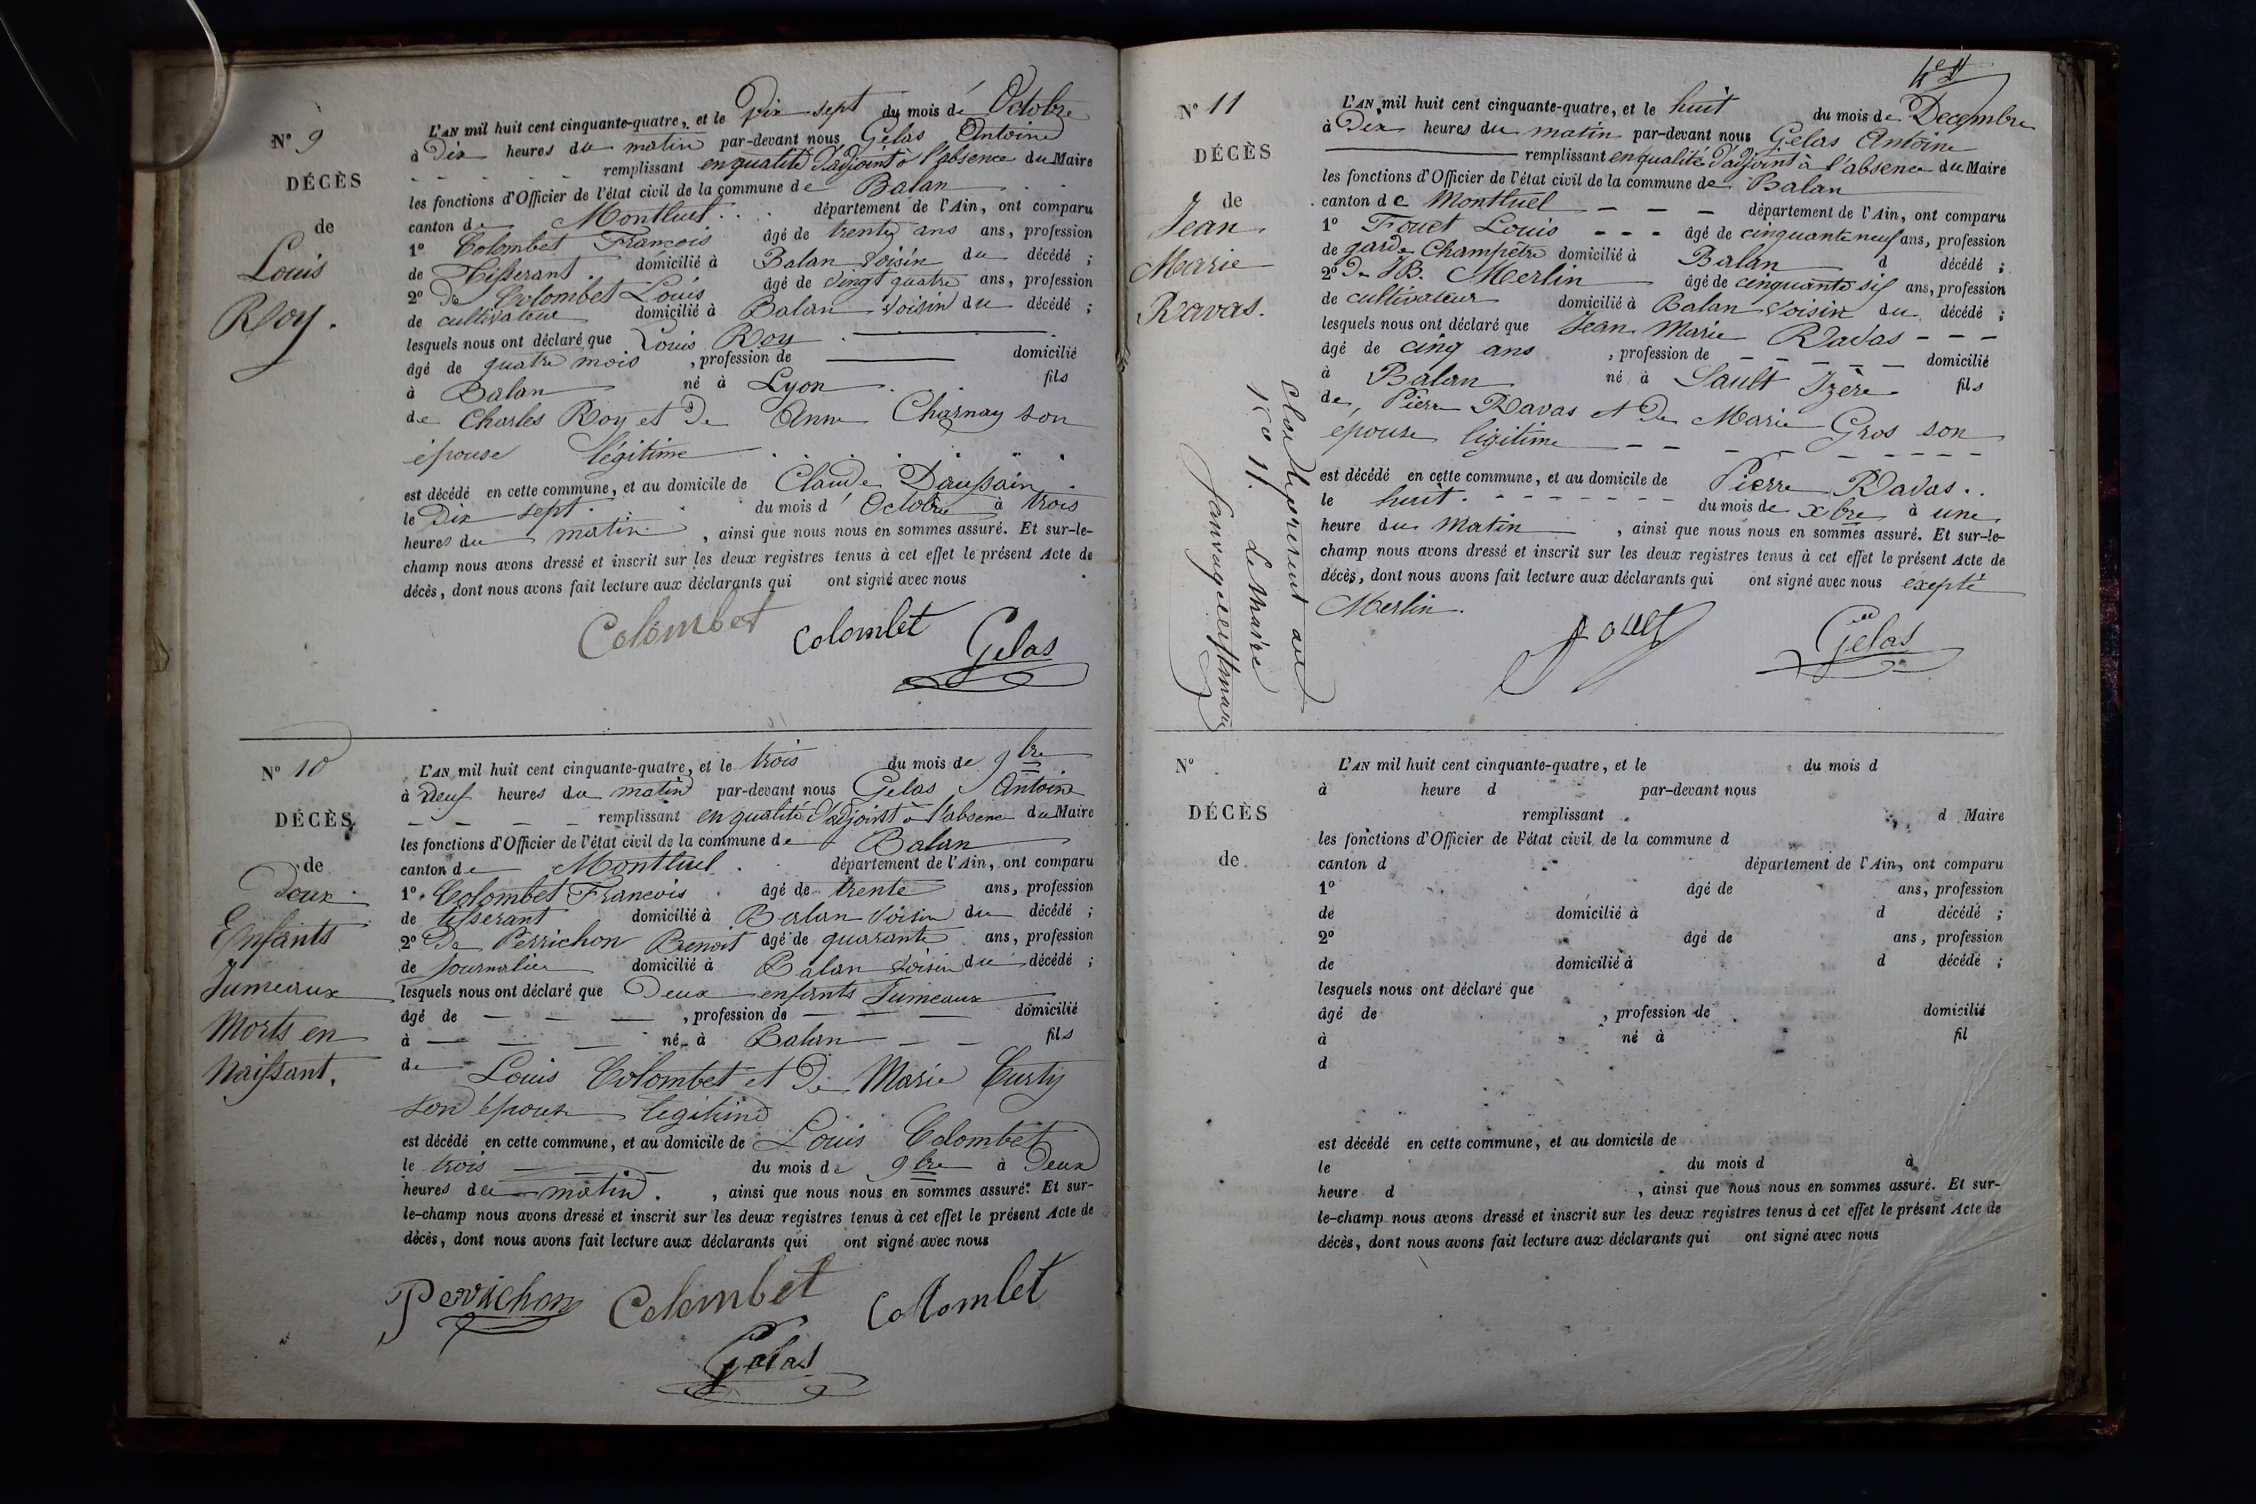 N° 9
DÉCÈS
de
Louis
Roy.
L'AN mil huit cent cinquante-quatre, et le Dix sept du mois de Octobre
à Dix heures du matin par-devant nous Gelas Antoine
remplissant en qualité d'adjoint à l'absence du Maire
les fonctions d'Officier de l'état civil de la commune de Balan
canton de Montluel département de l'Ain, ont comparu
1° Colombet Francois âgé de trente ans ans, profession
de Tisserant domicilié à Balan voisin du décédé ;
2° De Colombet Louis âgé de vingt quatre ans, profession
de cultivateur domicilié à Balan voisin du décédé ;
lesquels nous ont déclaré que Louis Roy
âgé de quatre mois , profession de domicilié
à Balan né à Lyon fils
de Charles Roy et De Anne Charnay son
épouse légitime
est décédé en cette commune, et au domicile de Claude
le Dix sept du mois d' Octobre à trois
heures du matin , ainsi que nous nous en sommes assuré. Et sur-le-
champ nous avons dressé et inscrit sur les deux registres tenus à cet effet le présent Acte de
décès, dont nous avons fait lecture aux déclarants qui ont signé avec nous
Colombet Colombet Gelas
N° 10
DÉCÈS
de
Deux
Enfants
Jumeaux
Morts en
Naissant.
L'AN mil huit cent cinquante-quatre, et le trois du mois de 9bre
à Neuf heures du matin par-devant nous Gelas Antoine
remplissant en qualité d'adjoint à l'absence du Maire
les fonctions d'Officier de l'état civil de la commune de Balan
canton de Montluel département de l'Ain, ont comparu
1° Colombet Francois âgé de trente ans, profession
de tisserant domicilié à Balan voisin du décédé ;
2° De Perrichon Benoit âgé de quarante ans, profession
de journalier domicilié à Balan voisin du décédé ;
lesquels nous ont déclaré que Deux enfants Jumeaux
âgé de , profession de domicilié
à né à Balan fils
de Louis Colombet et De Marie Curty
son épouse légitime
est décédé en cette commune, et au domicile de Louis Colombet
le trois du mois de 9bre à Deux
heures du matin. , ainsi que nous nous en sommes assuré. Et sur-
le-champ nous avons dressé et inscrit sur les deux registres tenus à cet effet le présent Acte de
décès, dont nous avons fait lecture aux déclarants qui ont signé avec nous
Perrichon Colombet Collomlet
Gelas
N° 11
DÉCÈS
de
Jean
Marie
Ravas.
L'AN mil huit cent cinquante-quatre, et le huit du mois de Decembre
à Dix heures du matin par-devant nous Gelas Antoine
remplissant en qualité d'adjoint à l'absence du Maire
les fonctions d'Officier de l'état civil de la commune de Balan
canton de Montluel département de l'Ain, ont comparu
1° Fouet Louis âgé de cinquante neuf ans, profession
de garde Champêtre domicilié à Balan d décédé ;
2° De JB. Merlin âgé de cinquante six ans, profession
de cultivateur domicilié à Balan voisin du décédé ;
lesquels nous ont déclaré que Jean Marie Ravas
âgé de cinq ans , profession de domicilié
à Balan né à Sault Izère fils
de Pierre Ravas et De Marie Gros son
épouse légitime
est décédé en cette commune, et au domicile de Pierre Ravas
le huit du mois de xbre à une
heure du matin , ainsi que nous nous en sommes assuré. Et sur-le-
champ nous avons dressé et inscrit sur les deux registres tenus à cet effet le présent Acte de
décès, dont nous avons fait lecture aux déclarants qui ont signé avec nous exepté
Merlin.
Fouet Gelas
Clos le présent au
N° 11. Le Maire
N°
DÉCÈS
de
L'AN mil huit cent cinquante-quatre, et le du mois d
à heure d par-devant nous
remplissant d Maire
les fonctions d'Officier de l'état civil de la commune d
canton d département de l'Ain, ont comparu
1° âgé de ans, profession
de domicilié à d décédé ;
2° âgé de ans, profession
de domicilié à d décédé ;
lesquels nous ont déclaré que
âgé de , profession de domicilié
à né à fil
d
est décédé en cette commune, et au domicile de
le du mois d à
heure d , ainsi que nous nous en sommes assuré. Et sur-
le-champ nous avons dressé et inscrit sur les deux registres tenus à cet effet le présent Acte de
décès, dont nous avons fait lecture aux déclarants qui ont signé avec nous